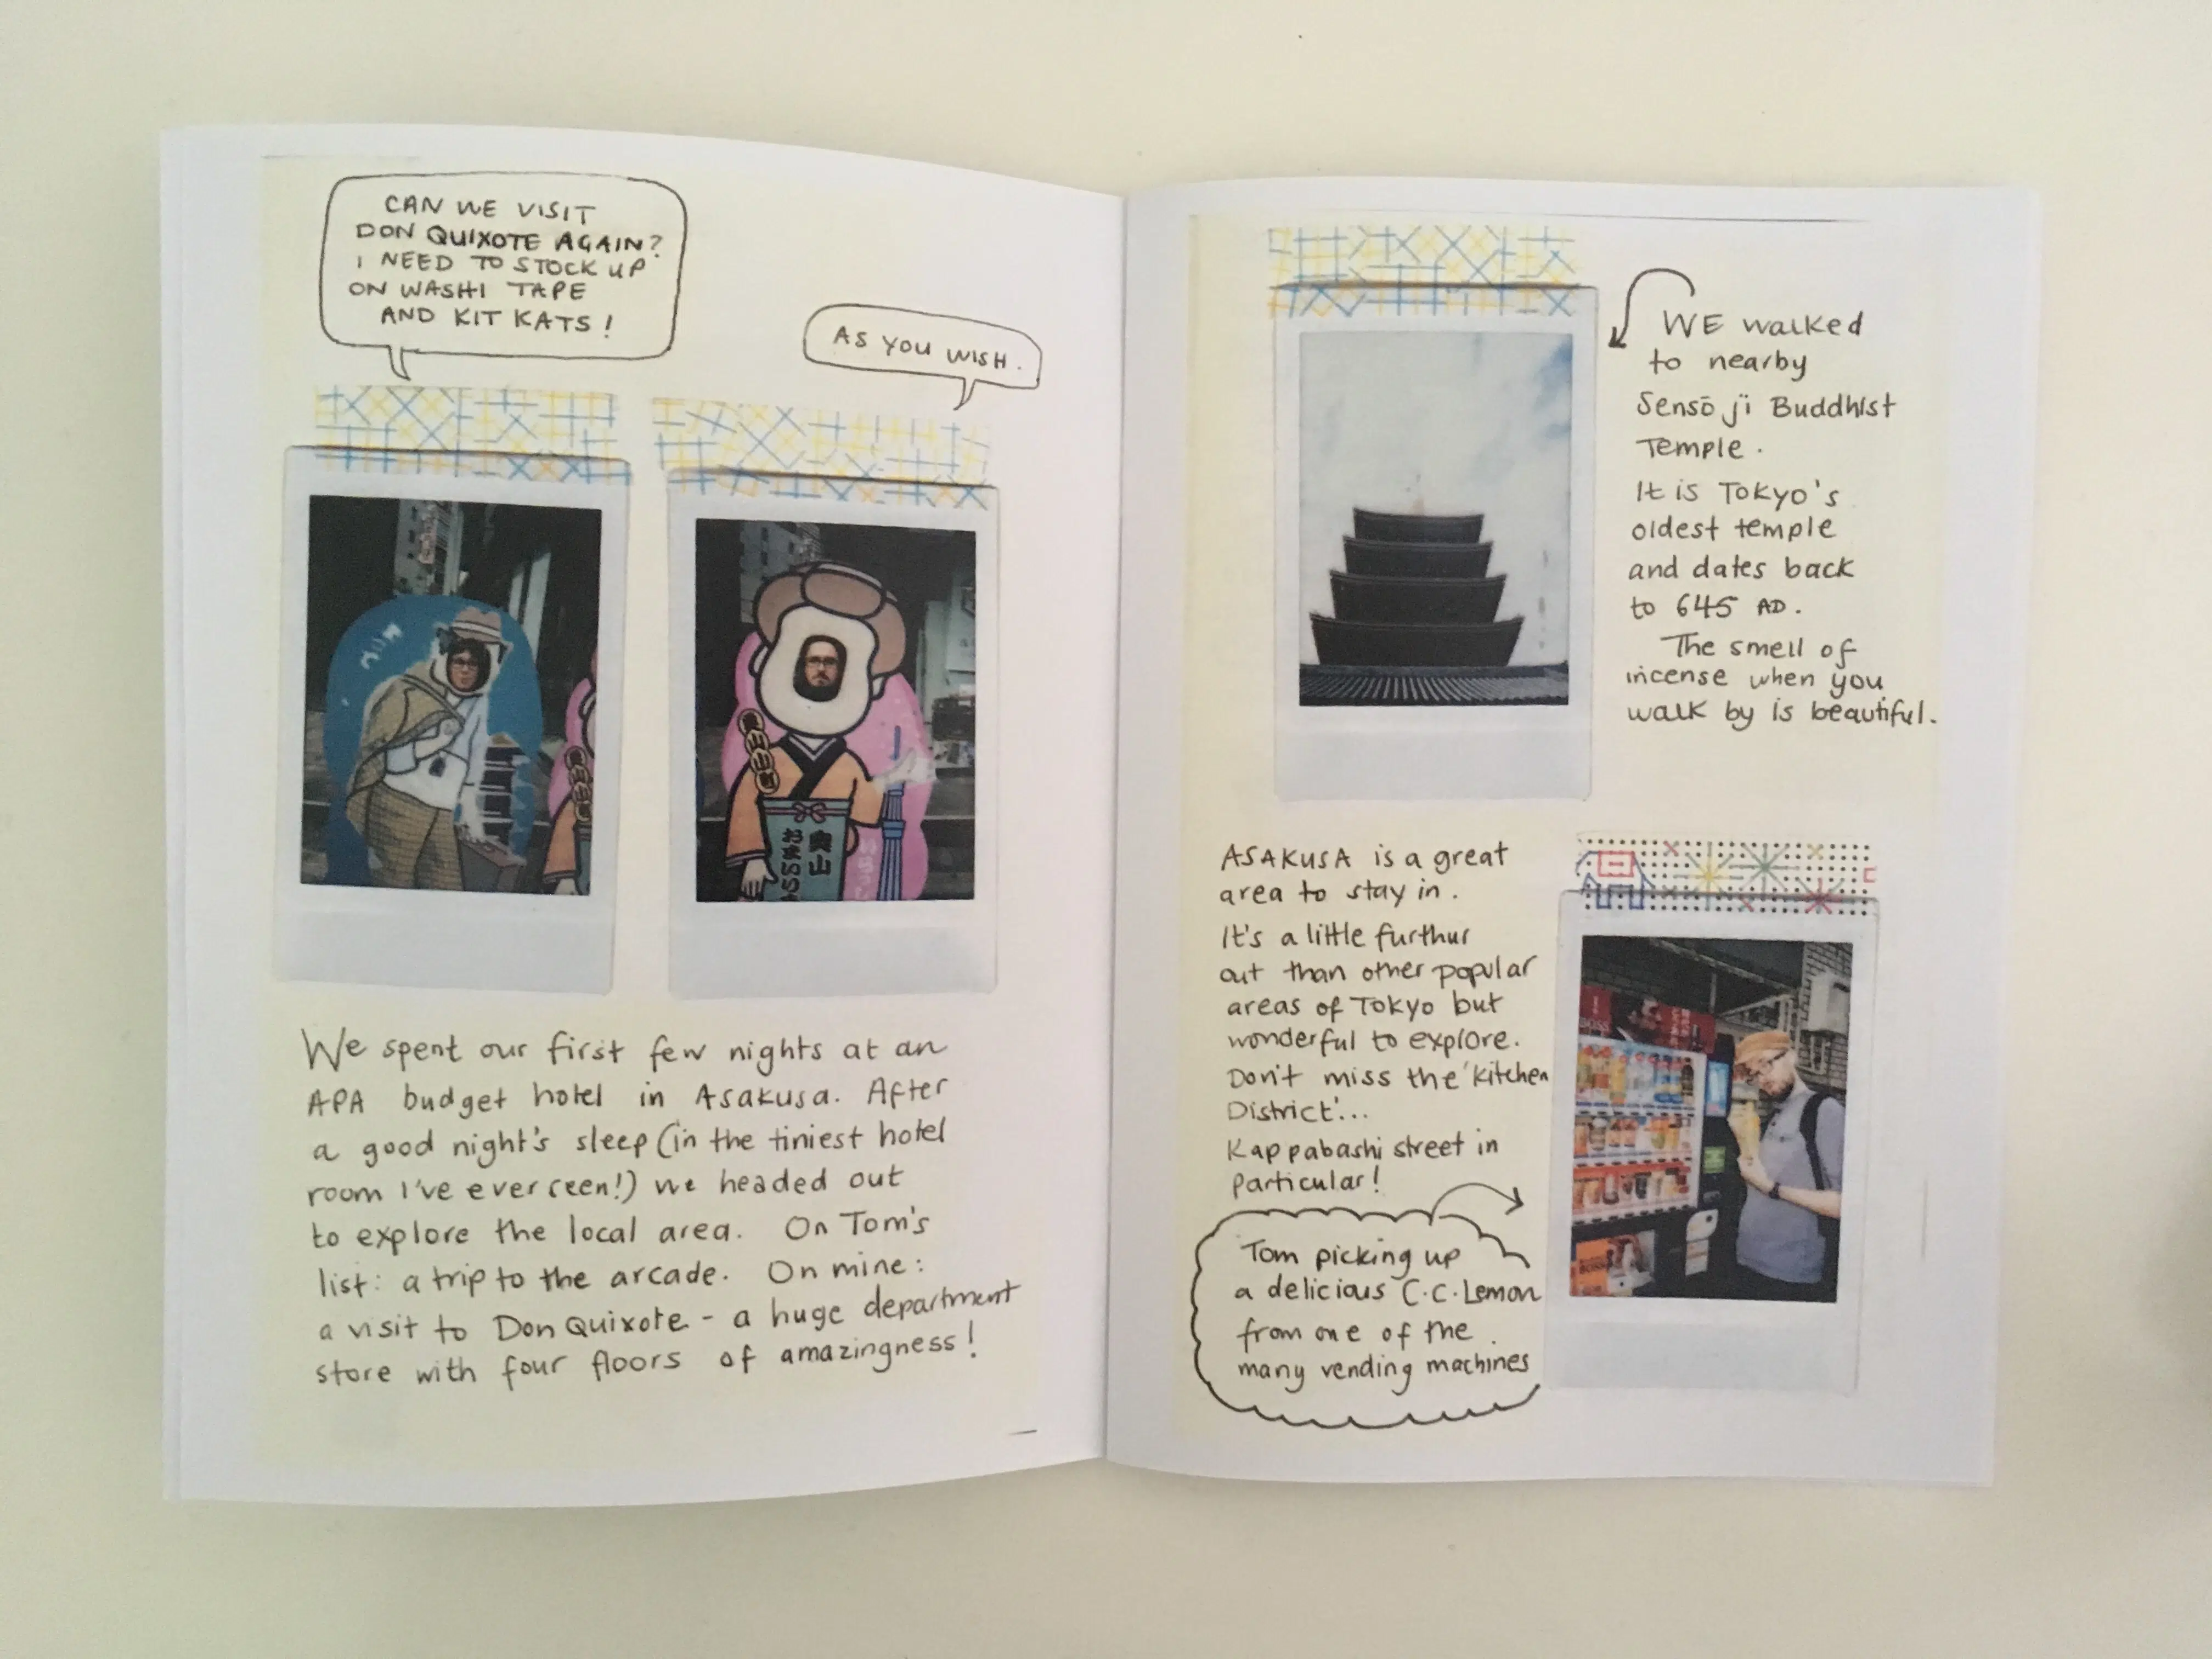 CAN WE VISIT
DON QUIXOTE AGAIN?
I NEED TO STOCK UP
ON WASHI TAPE
AND KIT KATS!
AS YOU WISH.
奥山
おまいり
We spent our first few nights at an
APA budget hotel in Asakusa. After
a good night's sleep (in the tiniest hotel
room I've ever seen!) we headed out
to explore the local area. On Tom's
list: a trip to the arcade. On mine:
a visit to Don Quixote - a huge department
store with four floors of amazingness!
WE walked
to nearby
Sensō ji Buddhist
Temple.
It is Tokyo's
oldest temple
and dates back
to 645 AD.
The smell of
incense when you
walk by is beautiful.
ASAKUSA is a great
area to stay in.
It's a little furthur
out than other popular
areas of Tokyo but
wonderful to explore.
Don't miss the 'Kitchen
District'...
Kappabashi street in
particular!
BOSS
Tom picking up
a delicious C.C. Lemon
from one of the
many vending machines